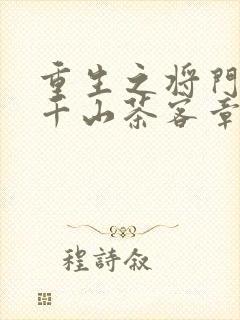 重生之将門
千山茶客章
程詩敘